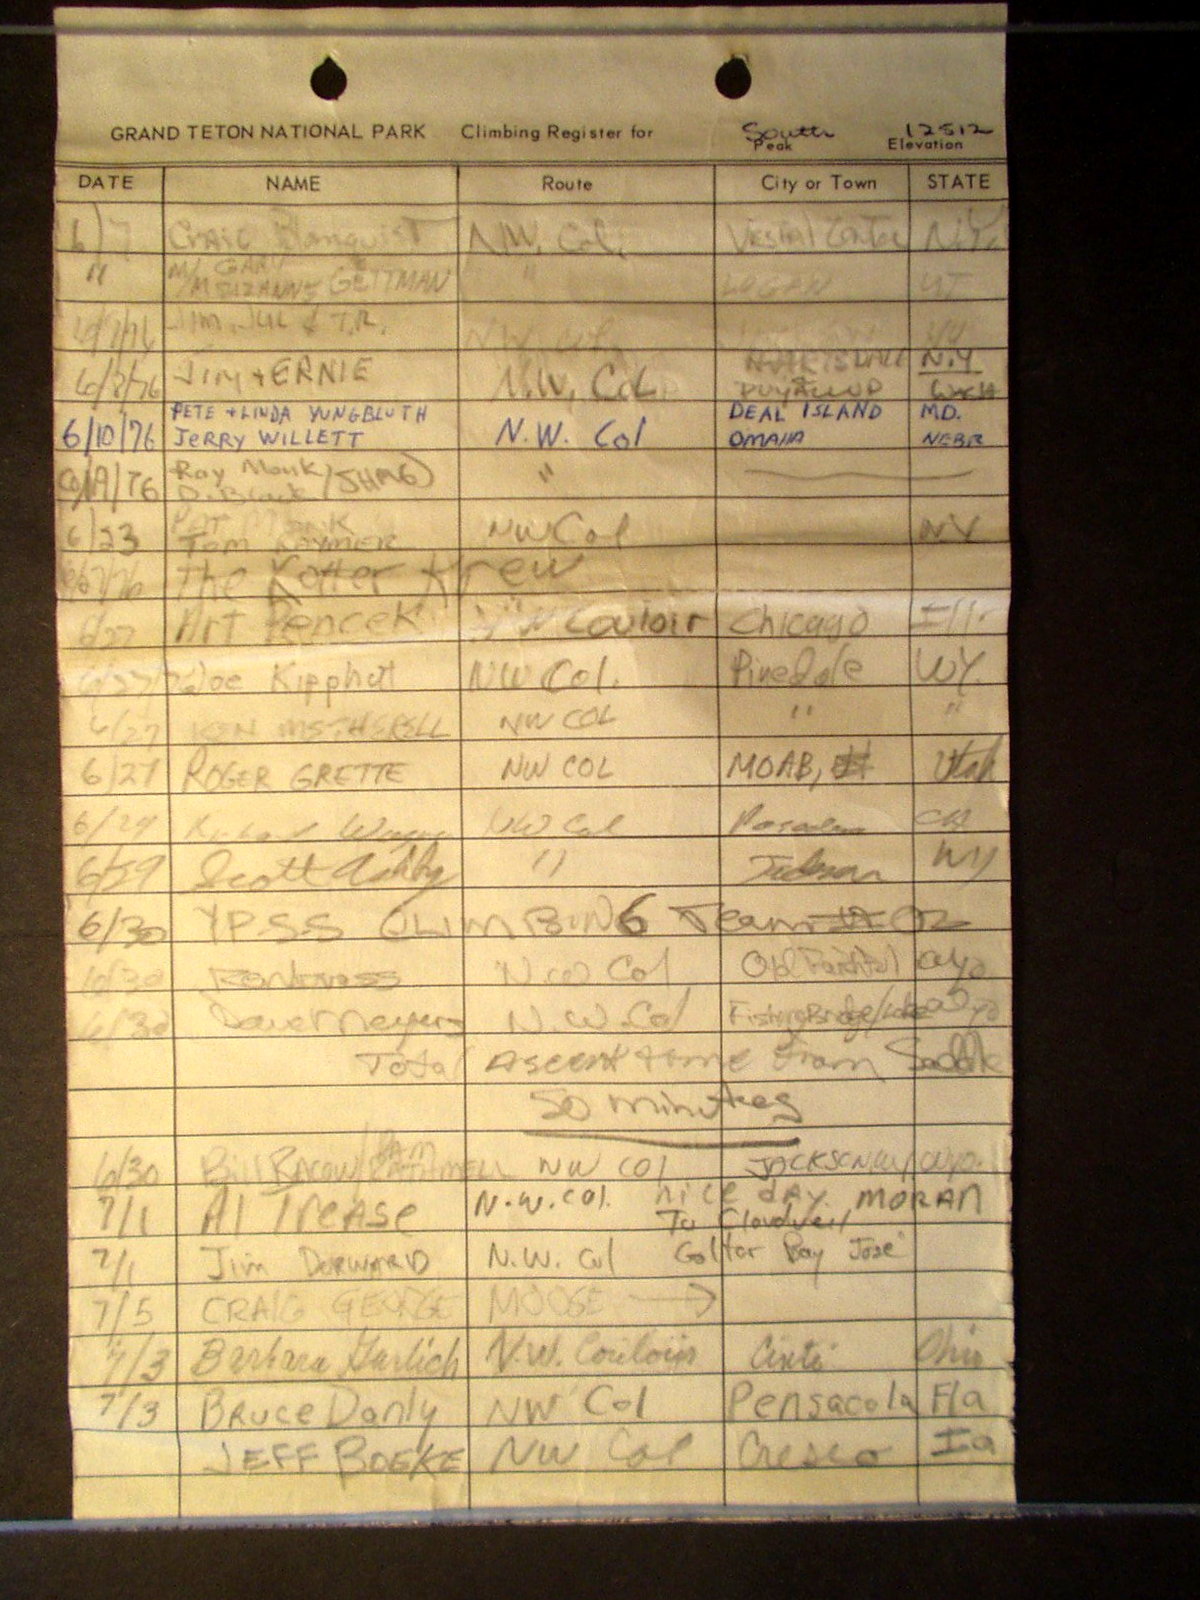 GRAND TETON NATIONAL PARK Climbing Register for South Peak 12512 Elevation
DATE NAME Route City or Town STATE
6/7 CRAIG NW. Col. VESTAL CENTER N.Y.
" GARY & SUZANNE GETTMAN " LOGAN UT
JIM, JUL & T.R. NW. Col.
6/8/76 JIM + ERNIE N.W. Col. N.Y.
PUYALLUP WASH
PETE + LINDA YUNGBLUTH DEAL ISLAND MD.
6/10/76 JERRY WILLETT N.W. Col OMAHA NEBR
6/19/76 Ray Monk "
D. Black
6/23 Tom NW Col NY
The Kotter Krew
6/27 Art Pencek NW Couloir Chicago Ill.
6/27 Joe Kipphut NW Col. Pinedale WY.
6/27 KEN METHERELL NW COL " "
6/27 ROGER GRETTE NW COL MOAB, Utah
6/29 NW Col CA
6/29 Scott Ashby " Jackson WY
6/30 YPSS CLIMBING Team
6/30 N.W Col Old Faithful Wyo
6/30 Dave Meyers N.W. Col Fishing Bridge/Lake Wyo
Total Ascent time from Saddle
50 minutes
6/30 Bill NW Col JACKSON Wyo.
7/1 Al Trease N.W. Col. nice day. MORAN
To Cloudveil
7/1 Jim DORWARD N.W. Col Colter Bay José
7/5 CRAIG GEORGE MOOSE →
7/3 Barbara Garlich N.W. Couloir Cinti Ohio
7/3 Bruce Danly NW Col Pensacola Fla
JEFF BOEKE NW Col Cresco Ia